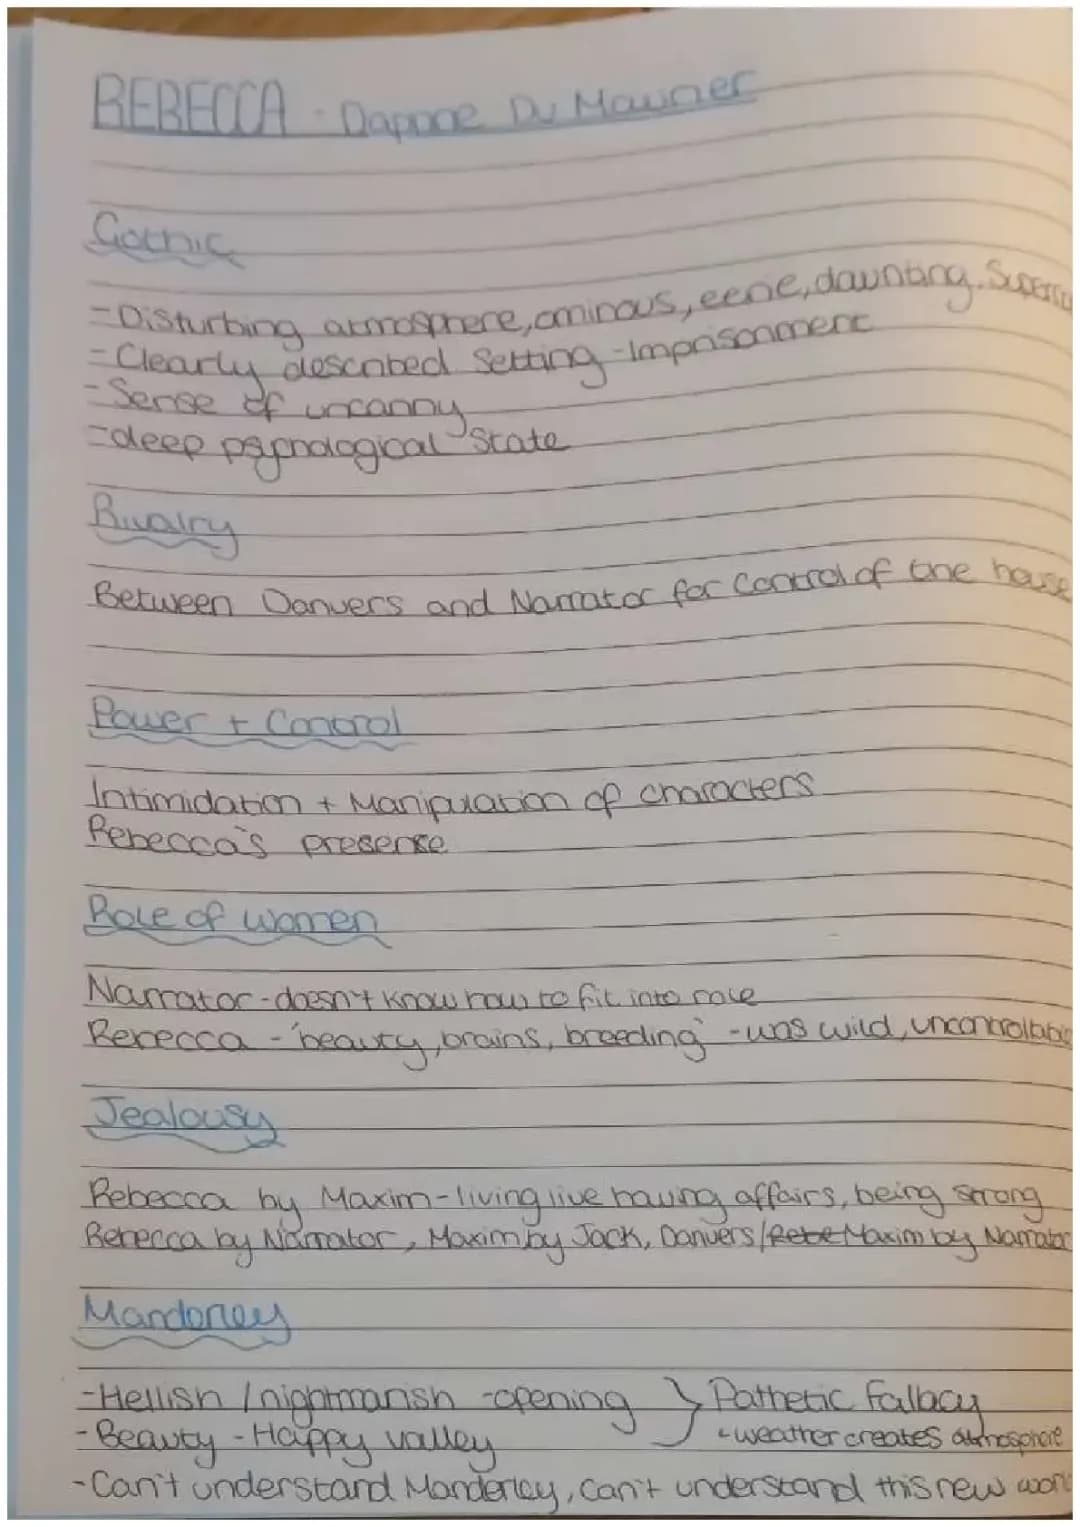 REBECCA - Dapnne Du Maurier
Gothic
- Disturbing atmosphere, ominous, eerie, daunting.
- Clearly described Setting - Imprisonment
- Sense of uncanny
- deep psychological State
Rivalry
Between Danvers and Narrator for Control of the house
Power + Control
Intimidation + Manipulation of characters
Rebecca's presense
Role of women
Narrator - doesn't know how to fit into role
Rebecca - 'beauty, brains, breeding' - was wild, uncontrollable
Jealousy
Rebecca by Maxim - living live having affairs, being strong
Rebecca by Narrator, Maxim by Jack, Danvers / Rebe Maxim by Narrator
Manderley
- Hellish / nightmarish - opening } Pathetic Fallacy
- Beauty - Happy valley - weather creates atmosphere
- Can't understand Manderley, can't understand this new